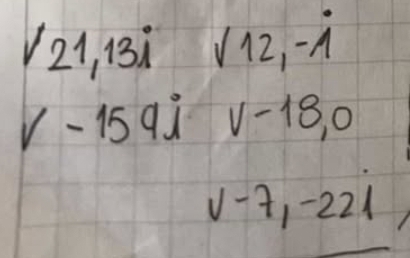 √21,13i √12,-i
√-15 9i √-18,0
√-7,-22i